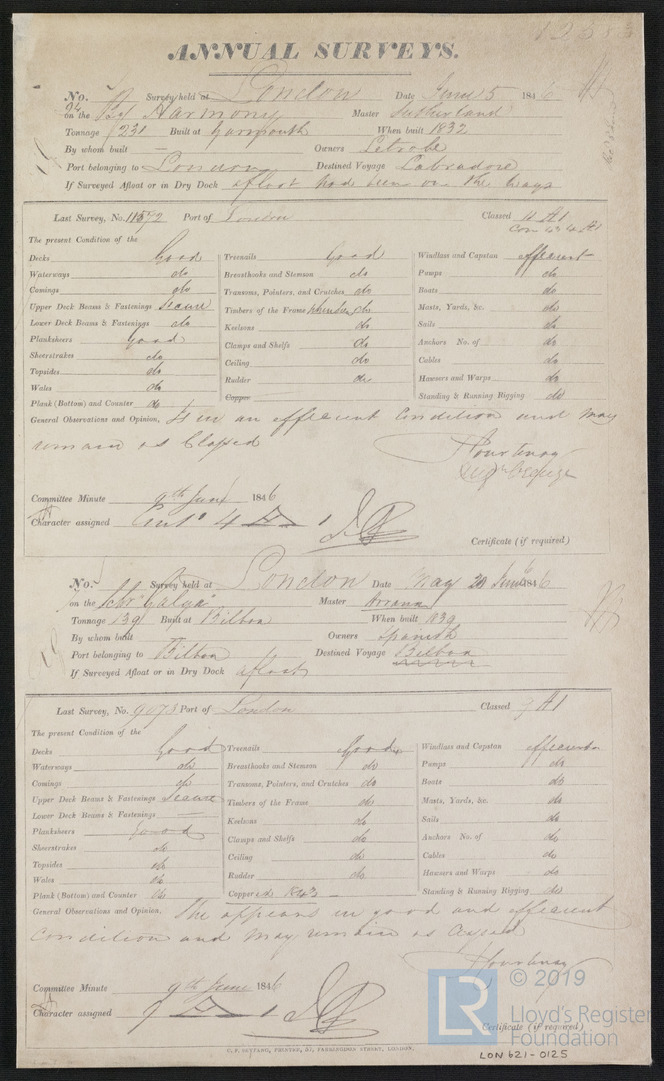 ANNUAL SURVEYS.
No. Survey held at London Date June 5 1846
on the Bg Harmony Master Sutherland
Tonnage 231 Built at Yarmouth When built 1832
By whom built — Owners Letrobe
Port belonging to London Destined Voyage Labradore
If Surveyed Afloat or in Dry Dock afloat had been on the Ways
Last Survey, No. 11572 Port of London Classed 4 A1
The present Condition of the
Decks Good Treenails Good Windlass and Capstan efficient
Waterways do Breasthooks and Stemson do Pumps do
Comings do Transoms, Pointers, and Crutches do Boats do
Upper Deck Beams & Fastenings Secure Timbers of the Frame do Masts, Yards, &c. do
Lower Deck Beams & Fastenings do Keelsons do Sails do
Planksheers Good Clamps and Shelfs do Anchors No. of do
Sheerstrakes do Ceiling do Cables do
Topsides do Rudder do Hawsers and Warps do
Wales do Copper Standing & Running Rigging do
Plank (Bottom) and Counter do
General Observations and Opinion, Is in an efficient Condition and may
remain as Classed
Courtenay
Committee Minute 9th June 1846
Character assigned 4 A 1
Certificate (if required)
No. Survey held at London Date May 20 June 6 1846
on the Schr "Galga" Master Arrana
Tonnage 139 Built at Bilboa When built 1839
By whom built Owners Spanish
Port belonging to Bilboa Destined Voyage Bilboa
If Surveyed Afloat or in Dry Dock afloat
Last Survey, No. 9078 Port of London Classed 9 A1
The present Condition of the
Decks Good Treenails Good Windlass and Capstan efficient
Waterways do Breasthooks and Stemson do Pumps do
Comings do Transoms, Pointers, and Crutches do Boats do
Upper Deck Beams & Fastenings Secure Timbers of the Frame do Masts, Yards, &c. do
Lower Deck Beams & Fastenings — Keelsons do Sails do
Planksheers Good Clamps and Shelfs do Anchors No. of do
Sheerstrakes do Ceiling do Cables do
Topsides do Rudder do Hawsers and Warps do
Wales do Coppered 1843 Standing & Running Rigging do
Plank (Bottom) and Counter do
General Observations and Opinion, The appears in good and efficient
Condition and may remain as Classed
Courtenay
Committee Minute 9th June 1846
Character assigned 9 A 1
Certificate (if required)
© 2019
LR Lloyd's Register
Foundation
LON 621-0125